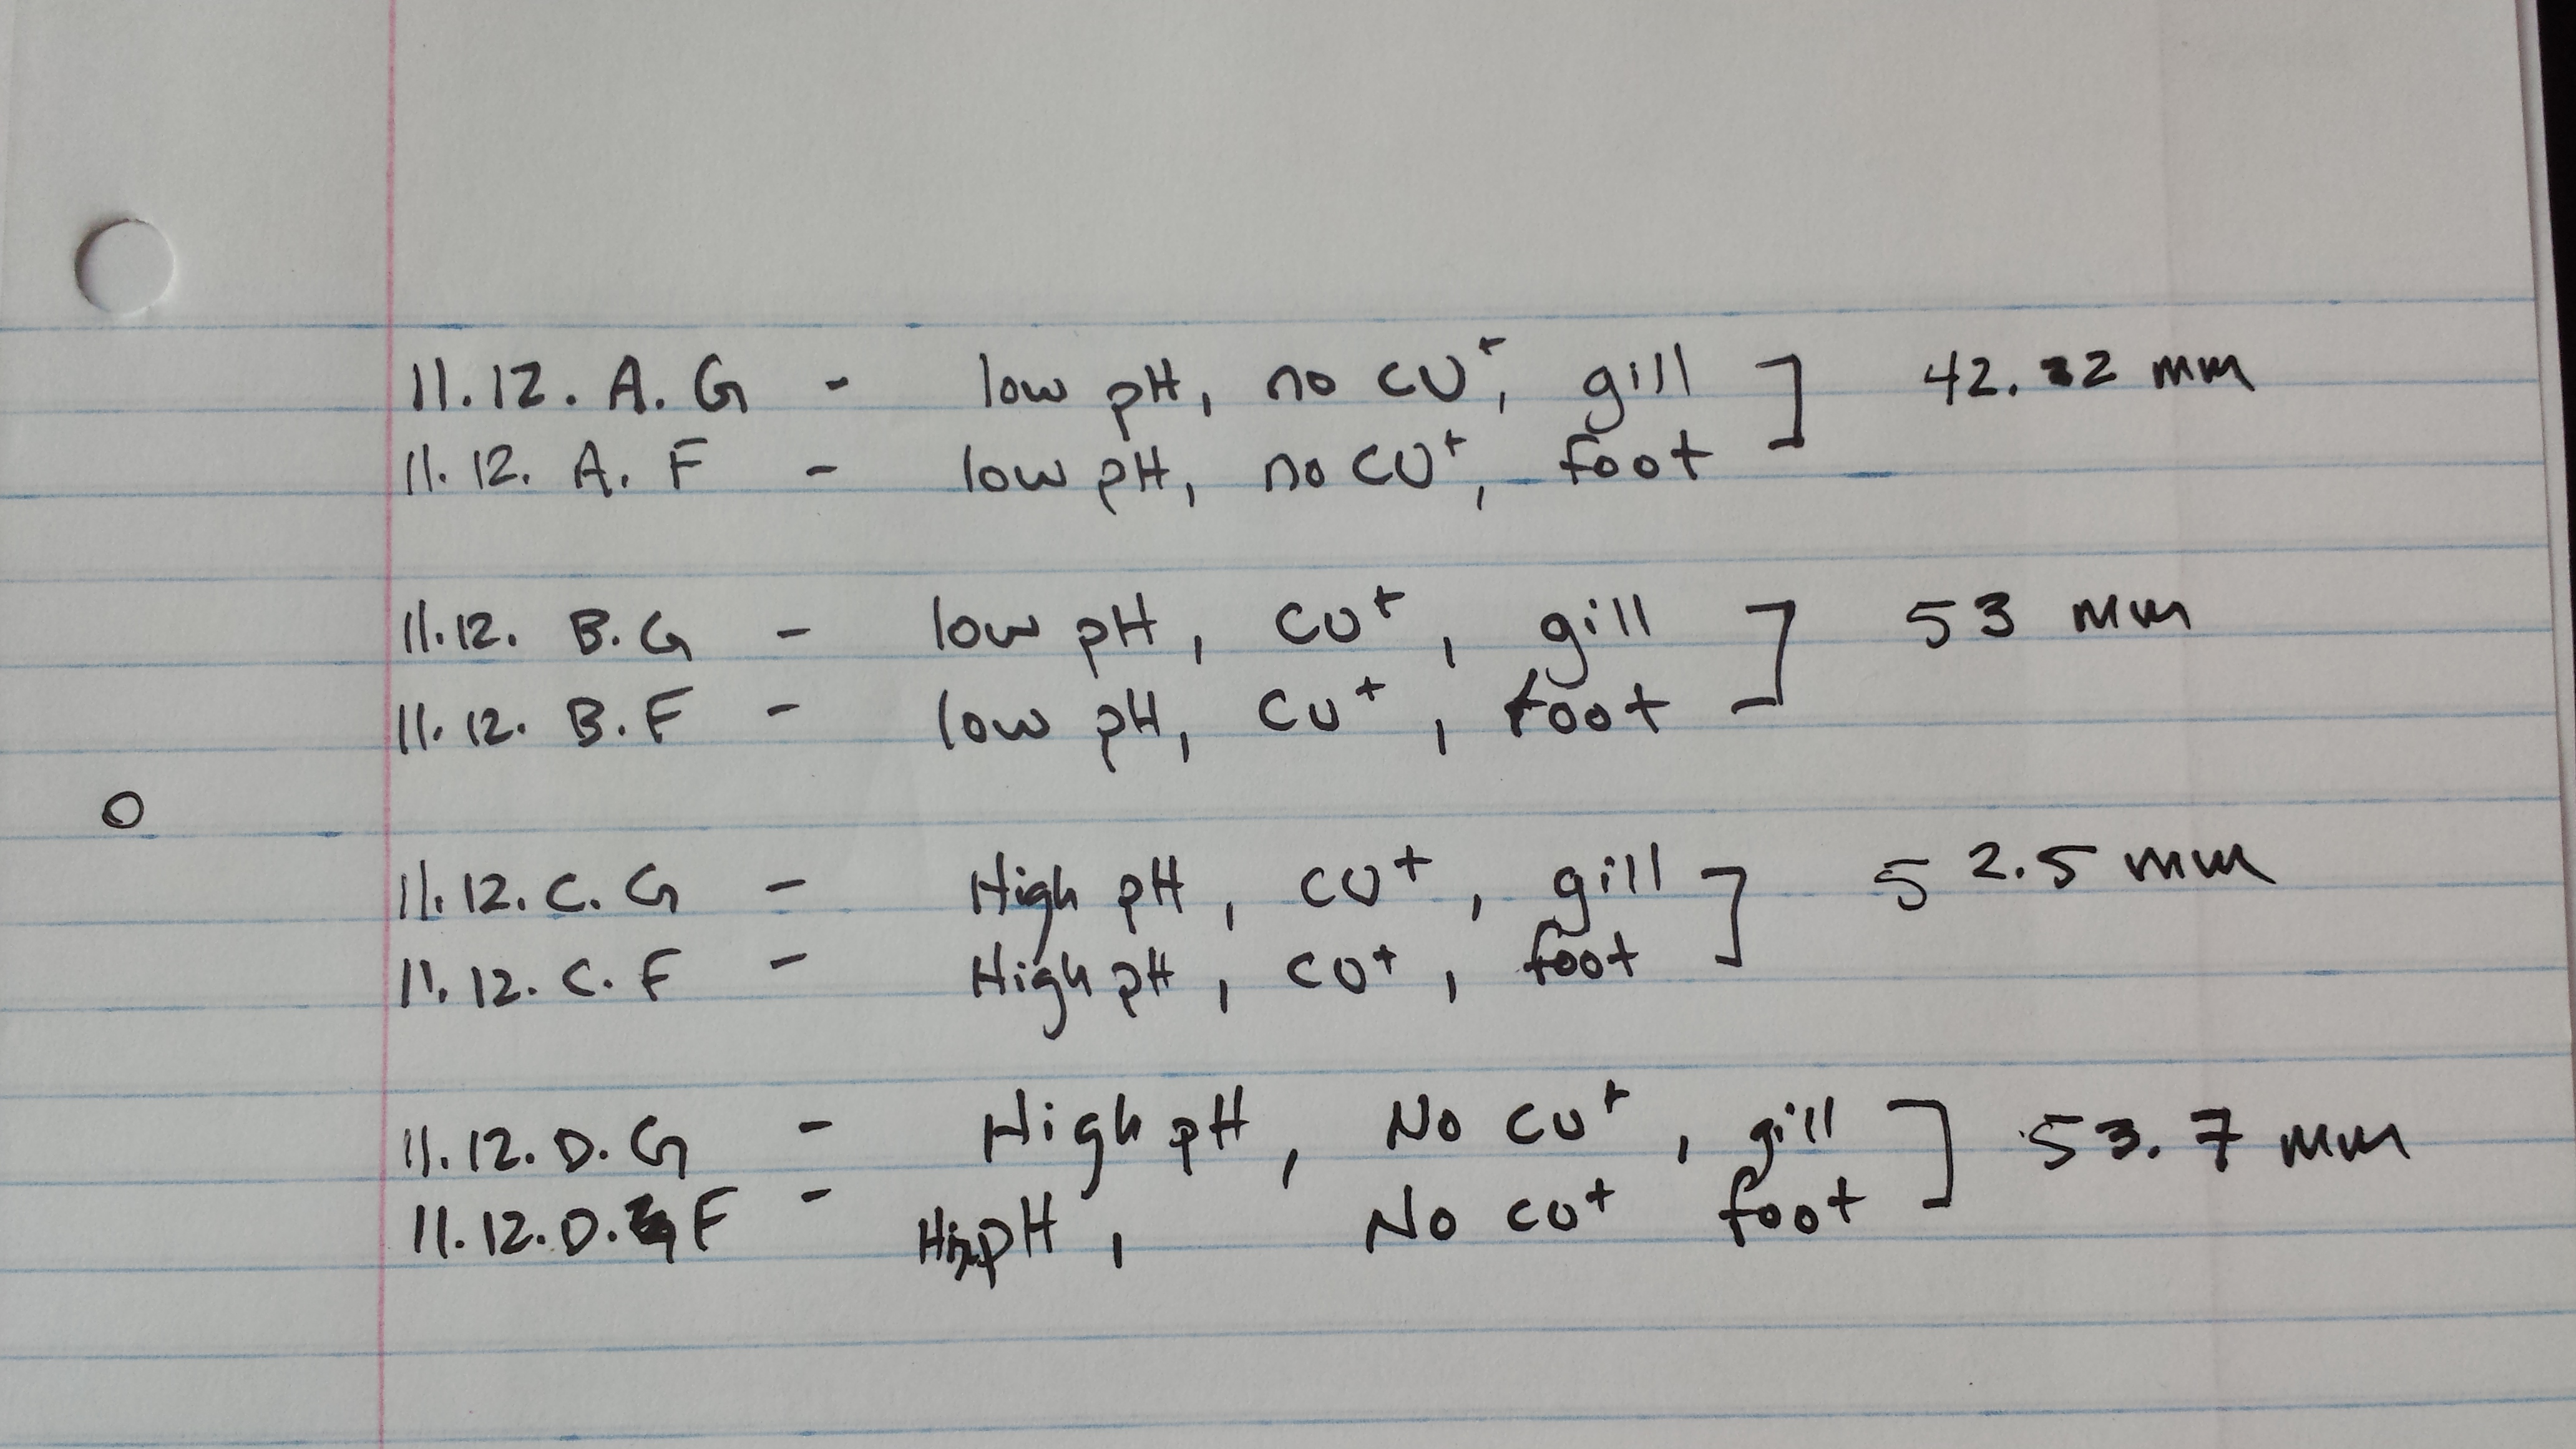 11.12.A.G - low pH, no cu⁺, gill ] 42.32 mm
11.12.A.F - low pH, no cu⁺, foot
11.12.B.G - low pH, cu⁺, gill ] 53 mm
11.12.B.F - low pH, cu⁺, foot
11.12.C.G - High pH, cu⁺, gill ] 52.5 mm
11.12.C.F - High pH, cu⁺, foot
11.12.D.G - High pH, No cu⁺, gill ] 53.7 mm
11.12.D.F - High pH, No cu⁺ foot